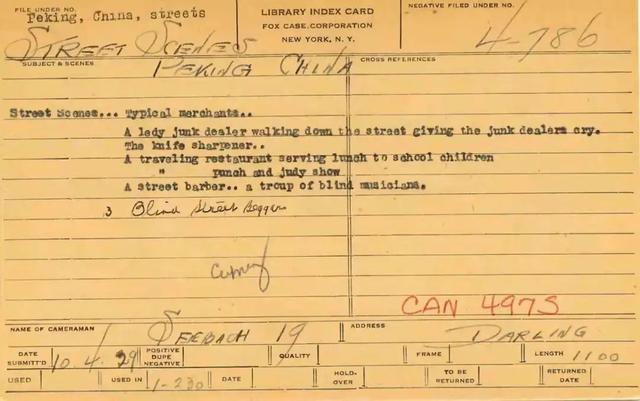 FILE UNDER NO.
Peking, China, streets
LIBRARY INDEX CARD
FOX CASE CORPORATION
NEW YORK, N. Y.
NEGATIVE FILED UNDER NO.
4-786
STREET SCENES
SUBJECT & SCENES
PEKING CHINA
CROSS REFERENCES
Street Scenes... Typical merchants..
A lady junk dealer walking down the street giving the junk dealers cry.
The knife sharpener..
A traveling restaurant serving lunch to school children
" punch and judy show
A street barber.. a troup of blind musicians.
3 Blind Street Beggar
CAN 4975
NAME OF CAMERAMAN SEEBACH 19 ADDRESS DARLING
DATE SUBMITT'D 10.4.29 POSITIVE DUPE NEGATIVE QUALITY FRAME LENGTH 1100
USED USED IN 1-230 DATE HOLD-OVER TO BE RETURNED RETURNED DATE